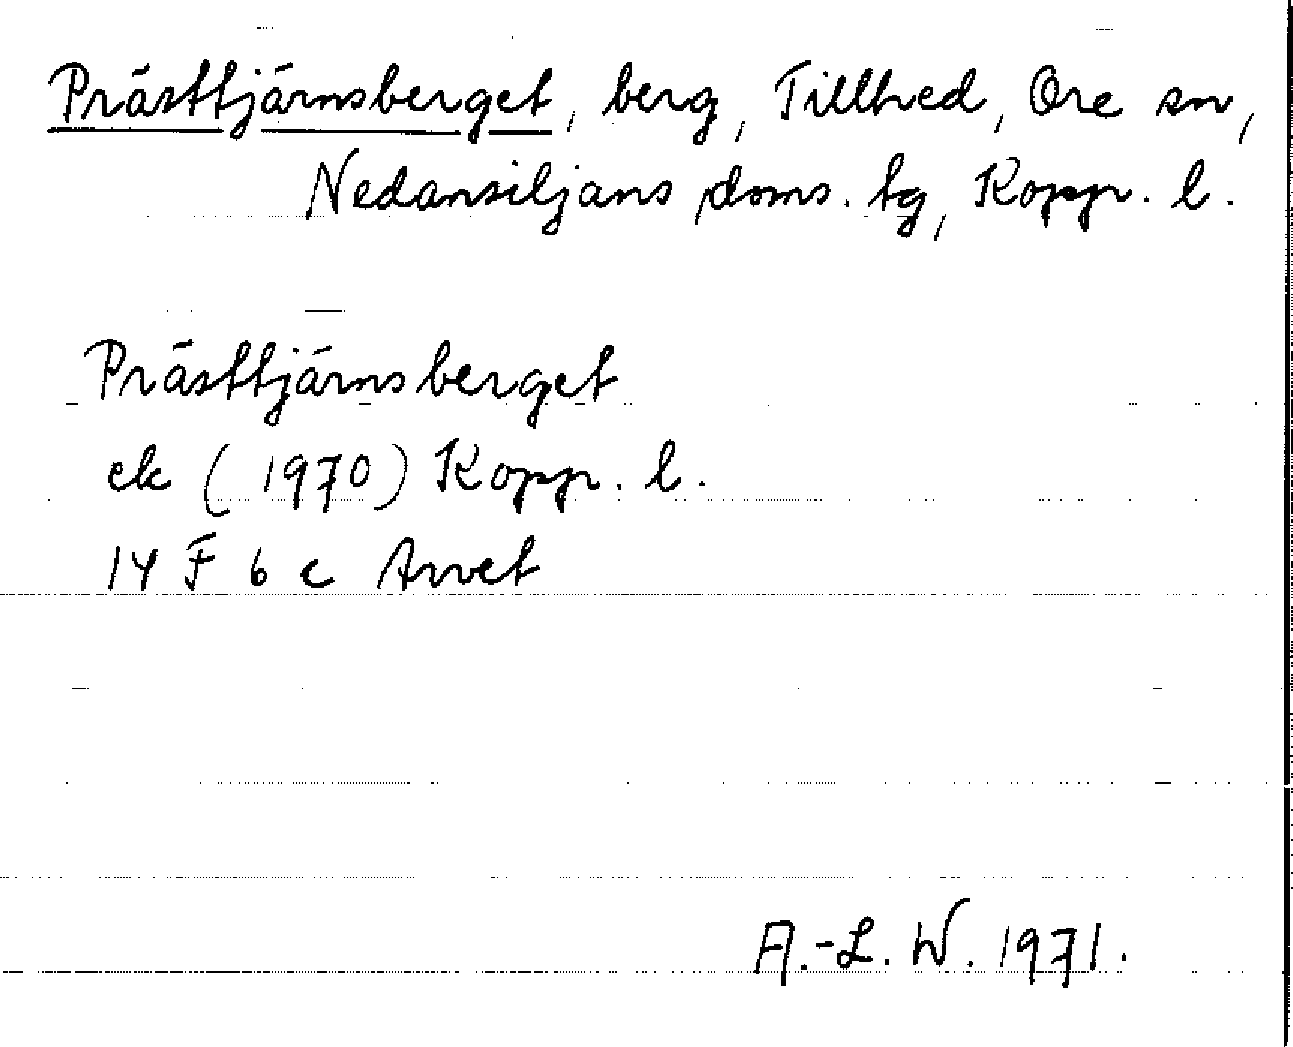 Prästtjärnsberget, berg, Tillhed, Ore sn,
Nedansiljans doms. tg, Kopp. l.
Prästtjärnsberget
ek (1970) Kopp. l.
14 F 6 c Arvet
A.-L. W. 1971.